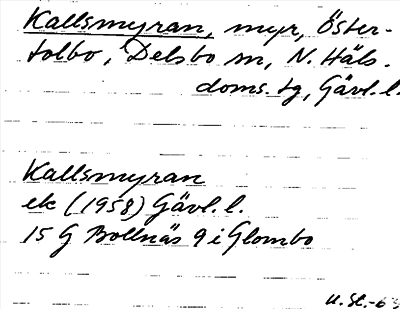 Kallsmyran, myr, Öster-
tolbo, Delsbo sn, N. Häls.
doms. tg, Gävl. l.
Kallsmyran
ek (1958) Gävl. l.
15 G Bollnäs 9 i Glombo